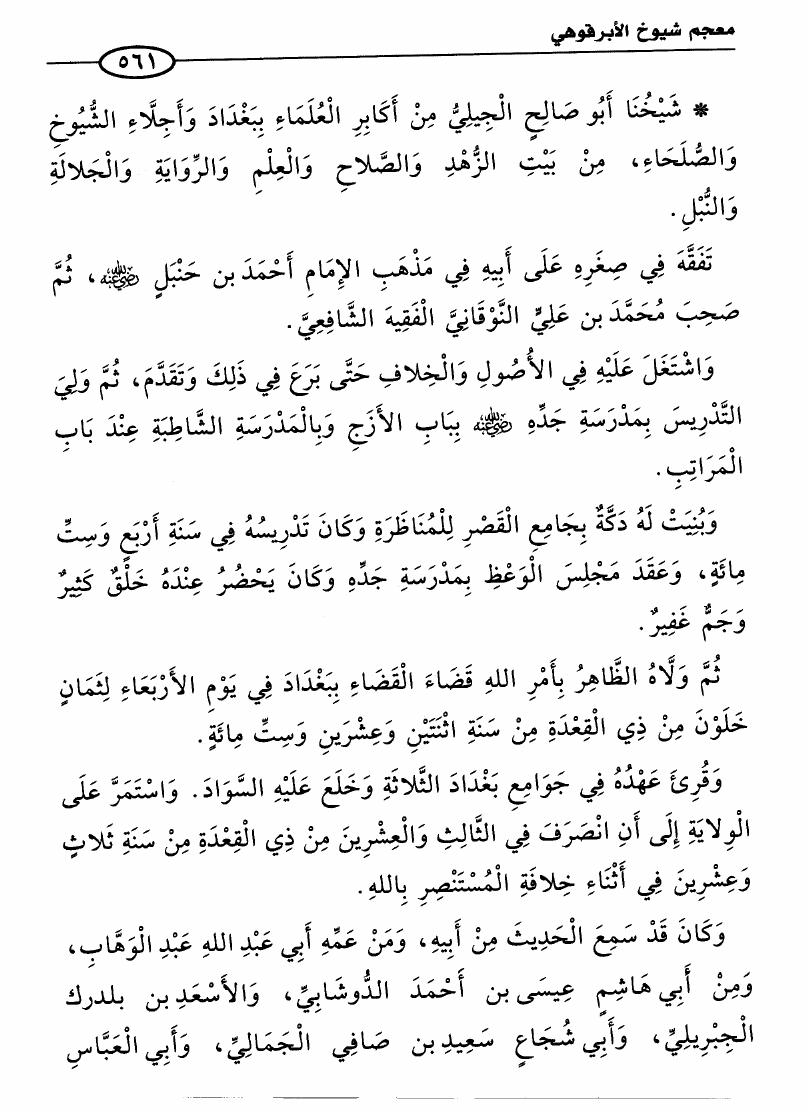 معجم شيوخ الأبرقوهي
٥٦١
* شَيْخُنَا أَبُو صَالِحٍ الْجِيلِيُّ مِنْ أَكَابِرِ الْعُلَمَاءِ بِبَغْدَادَ وَأَجِلَّاءِ الشُّيُوخِ
وَالصُّلَحَاءِ، مِنْ بَيْتِ الزُّهْدِ وَالصَّلَاحِ وَالْعِلْمِ وَالرِّوَايَةِ وَالْجَلالَةِ
وَالنُّبْلِ.
تَفَقَّهَ فِي صِغَرِهِ عَلَى أَبِيهِ فِي مَذْهَبِ الإِمَامِ أَحْمَدَ بن حَنْبَلٍ رضي الله عنه، ثُمَّ
صَحِبَ مُحَمَّدَ بن عَلِيٍّ النَّوْقَانِيَّ الْفَقِيهَ الشَّافِعِيَّ.
وَاشْتَغَلَ عَلَيْهِ فِي الأُصُولِ وَالْخِلافِ حَتَّى بَرَعَ فِي ذَلِكَ وَتَقَدَّمَ، ثُمَّ وَلِيَ
التَّدْرِيسَ بِمَدْرَسَةِ جَدِّهِ رضي الله عنه بِبَابِ الأَزَجِ وَبِالْمَدْرَسَةِ الشَّاطِبَةِ عِنْدَ بَابِ
الْمَرَاتِبِ.
وَبُنِيَتْ لَهُ دَكَّةٌ بِجَامِعِ الْقَصْرِ لِلْمُنَاظَرَةِ وَكَانَ تَدْرِيسُهُ فِي سَنَةِ أَرْبَعٍ وَسِتِّ
مِائَةٍ، وَعَقَدَ مَجْلِسَ الْوَعْظِ بِمَدْرَسَةِ جَدِّهِ وَكَانَ يَحْضُرُ عِنْدَهُ خَلْقٌ كَثِيرٌ
وَجَمٌّ غَفِيرٌ.
ثُمَّ وَلَّاهُ الظَّاهِرُ بِأَمْرِ اللهِ قَضَاءَ الْقَضَاءِ بِبَغْدَادَ فِي يَوْمِ الأَرْبَعَاءِ لِثَمَانٍ
خَلَوْنَ مِنْ ذِي الْقِعْدَةِ مِنْ سَنَةِ اثْنَتَيْنِ وَعِشْرَينِ وَسِتِّ مِائَةٍ.
وَقُرِئَ عَهْدُهُ فِي جَوَامِعِ بَغْدَادَ الثَّلاثَةِ وَخَلَعَ عَلَيْهِ السَّوَادَ. وَاسْتَمَرَّ عَلَى
الْوِلايَةِ إِلَى أَنِ انْصَرَفَ فِي الثَّالِثِ وَالْعِشْرِينَ مِنْ ذِي الْقِعْدَةِ مِنْ سَنَةِ ثَلاثٍ
وَعِشْرِينَ فِي أَثْنَاءِ خِلافَةِ الْمُسْتَنْصِرِ بِاللهِ.
وَكَانَ قَدْ سَمِعَ الْحَدِيثَ مِنْ أَبِيهِ، وَمَنْ عَمِّهِ أَبِي عَبْدِ اللهِ عَبْدِ الْوَهَّابِ،
وَمِنْ أَبِي هَاشِمٍ عِيسَى بن أَحْمَدَ الدُّوشَابِيِّ، وَالأَسْعَدِ بن بلدرك
الْجِبْرِيلِيِّ، وَأَبِي شُجَاعٍ سَعِيدِ بن صَافِي الْجَمَالِيِّ، وَأَبِي الْعَبَّاسِ